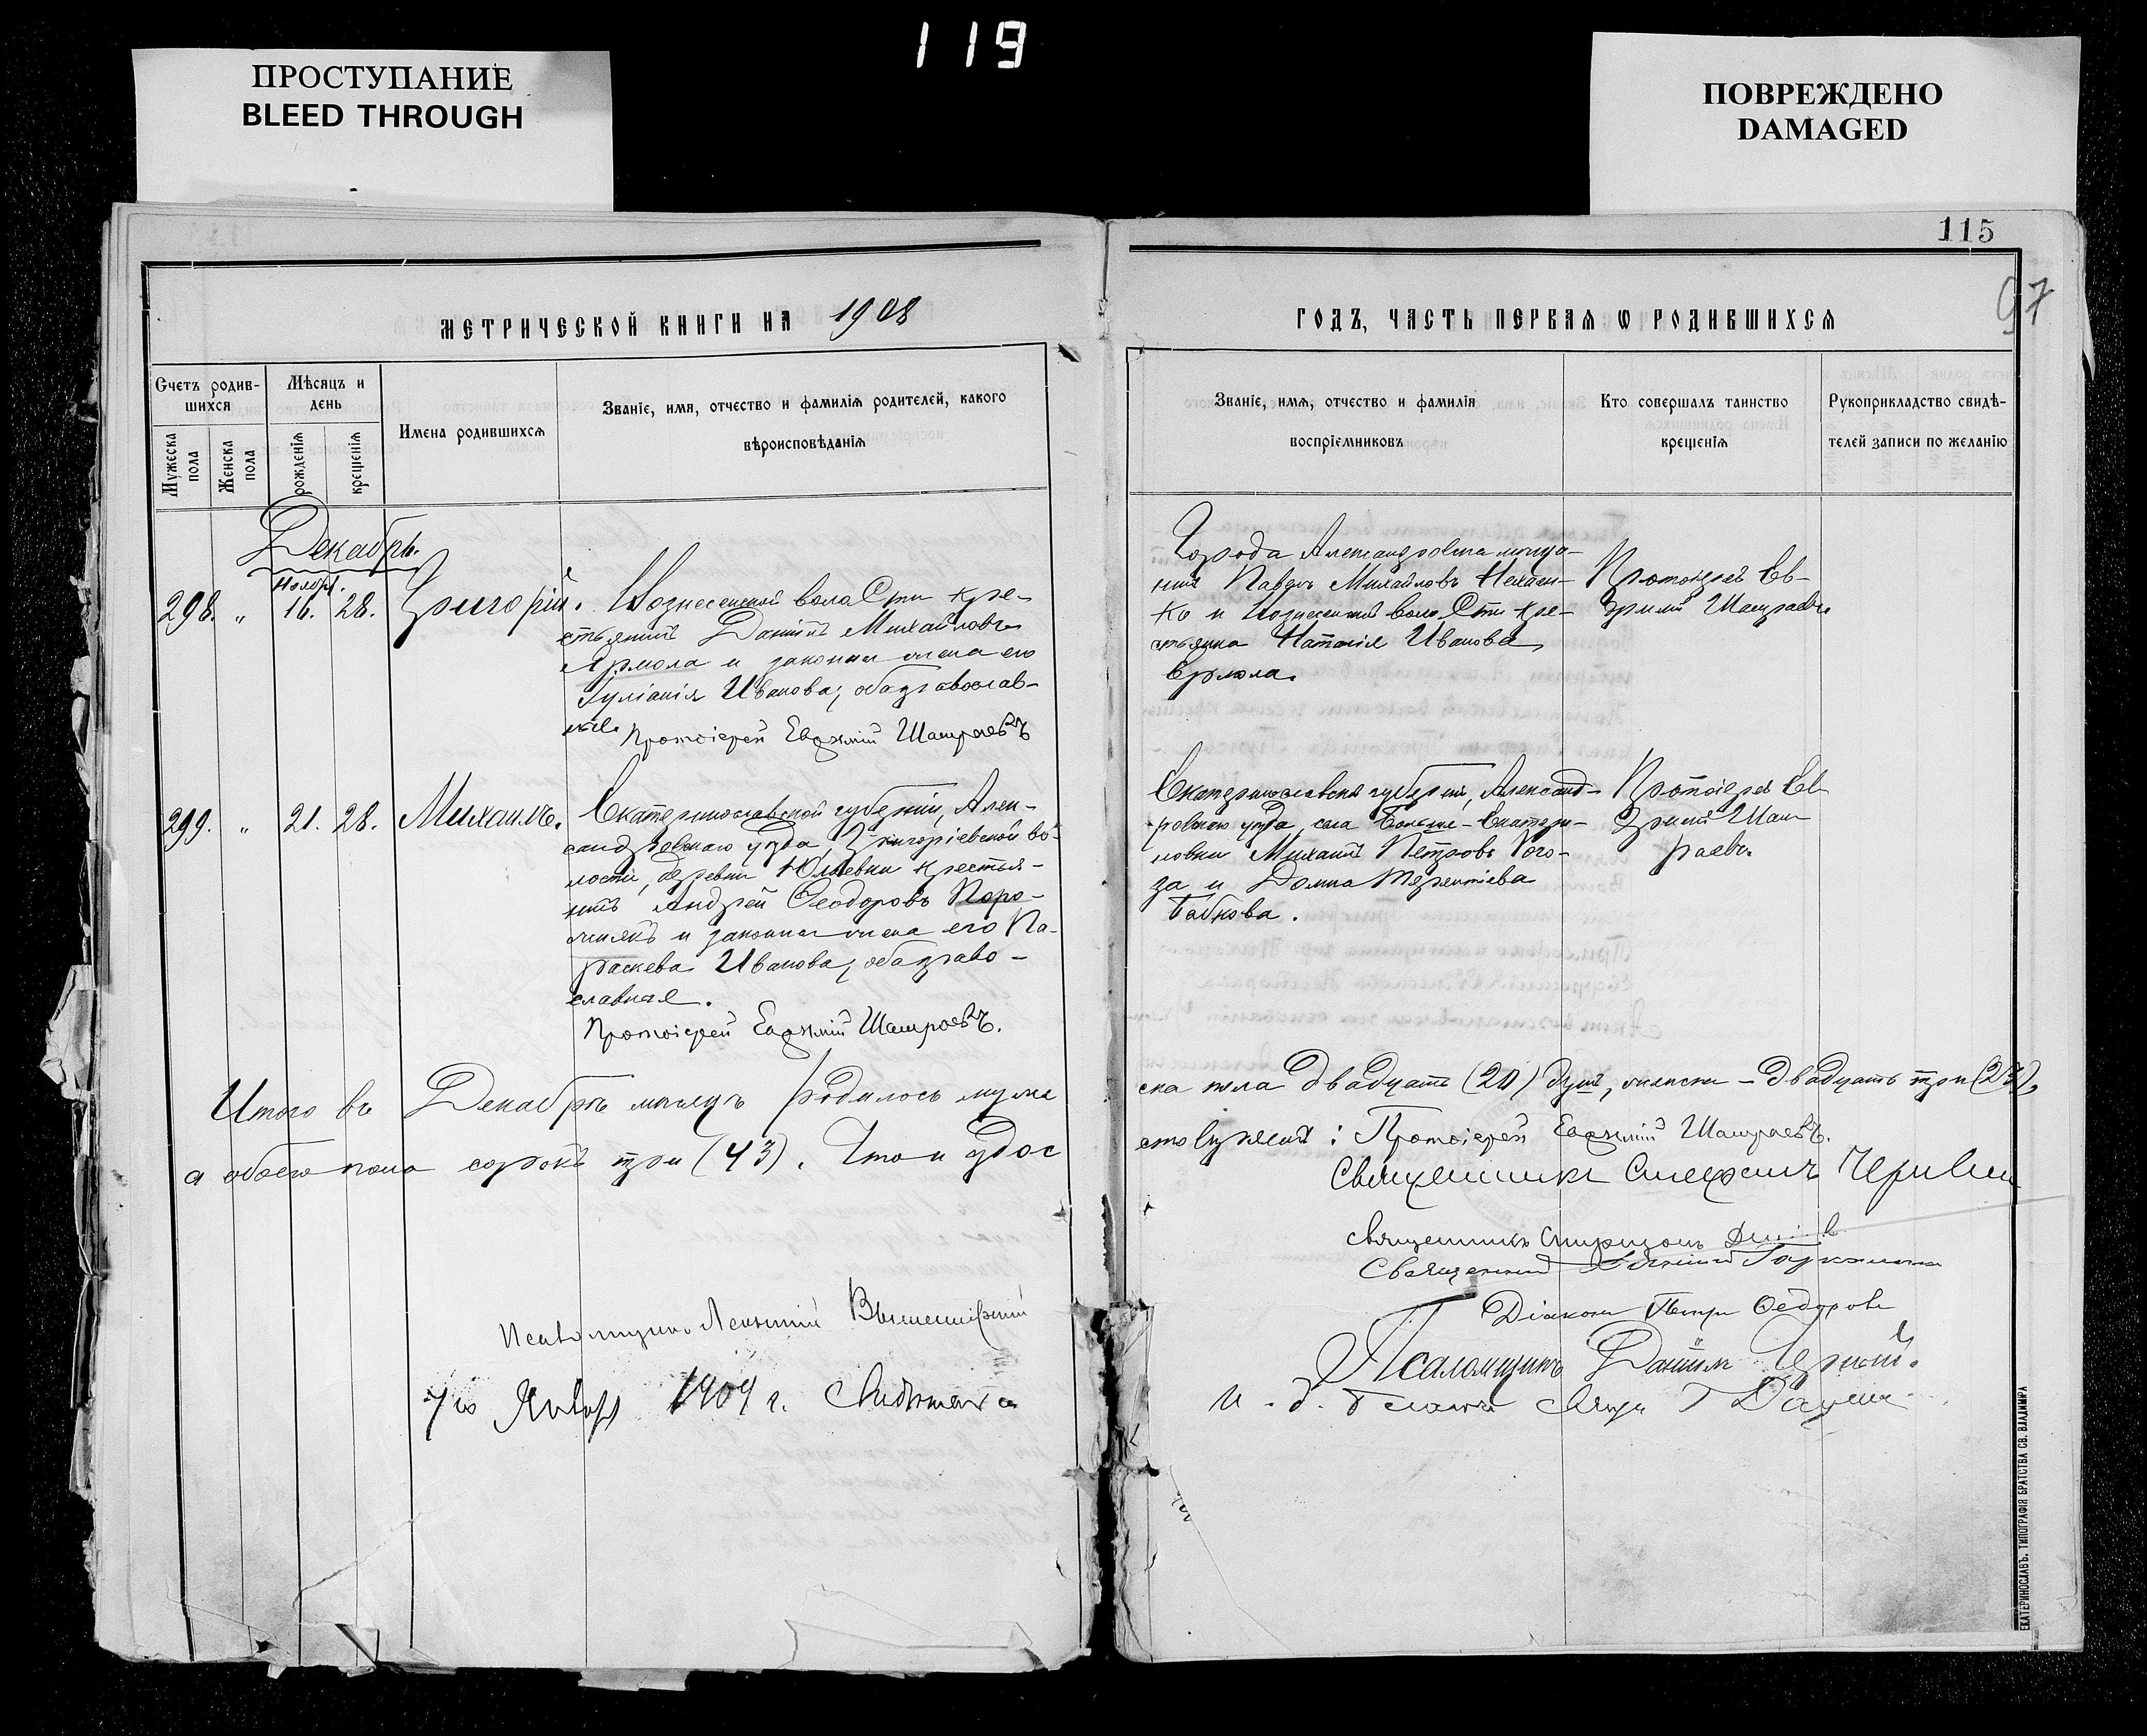 119
ПРОСТУПАНИЕ
BLEED THROUGH
ПОВРЕЖДЕНО
DAMAGED
115
97
МЕТРИЧЕСКОЙ КНИГИ НА 1908
ГОДЪ, ЧАСТЬ ПЕРВАЯ О РОДИВШИХСЯ
Счетъ родив-
шихся
Мѣсяцъ и
день
Мужеска пола
Женска пола
рожденія
крещенія
Имена родившихся
Званіе, имя, отчество и фамилія родителей, какого
вѣроисповѣданія
Званіе, имя, отчество и фамилія
воспріемниковъ
Кто совершалъ таинство
крещенія
Рукоприкладство свидѣ-
телей записи по желанію
Декабрь.
Ноябр.
298. „ 16. 28. Григорій.
Вознесенской волости кре-
стьянинъ Даніилъ Михайловъ
Ярмола и законная жена его
Іуліанія Иванова; оба православ-
ные.
Протоіерей Евѳимій Шашраевъ
Города Александровска мѣща-
нинъ Павелъ Михайловъ
ко и Вознесенской волости кре-
стьянка Наталія Иванова
Ермола.
Протоіерей Ев-
ѳимій Шашраевъ.
299. „ 21. 28. Михаилъ.
Екатеринославской губерніи, Алек-
сандровскаго уѣзда, Григоріевской во-
лости, деревни Юльевки крестья-
нинъ Андрей Ѳеодоровъ Поро-
жнякъ и законная жена его Па-
раскева Иванова; оба право-
славные.
Протоіерей Евѳимій Шашраевъ.
Екатеринославской губерніи, Александ-
ровскаго уѣзда, села Больше-Екатери-
новки Михаилъ Петровъ Кого-
за и Домна Терентіева
Бабкова.
Протоіерей Ев-
ѳимій Шаш-
раевъ.
Итого въ Декабрѣ мѣсяцѣ родилось муже
ска пола двадцать (20) душъ, женска – двадцать три (23),
а обоего пола сорокъ три (43). Что и удос
товѣряемъ: Протоіерей Евѳимій Шашраевъ.
Священникъ Стефанъ
Священникъ Спиридонъ
Священникъ
Діаконъ Петръ Федоровъ
Псаломщикъ
Псаломщикъ Даніилъ Черный.
Января 1909 г.
и. д.
ЕКАТЕРИНОСЛАВЪ. ТИПОГРАФІЯ БРАТСТВА СВ. ВЛАДИМІРА